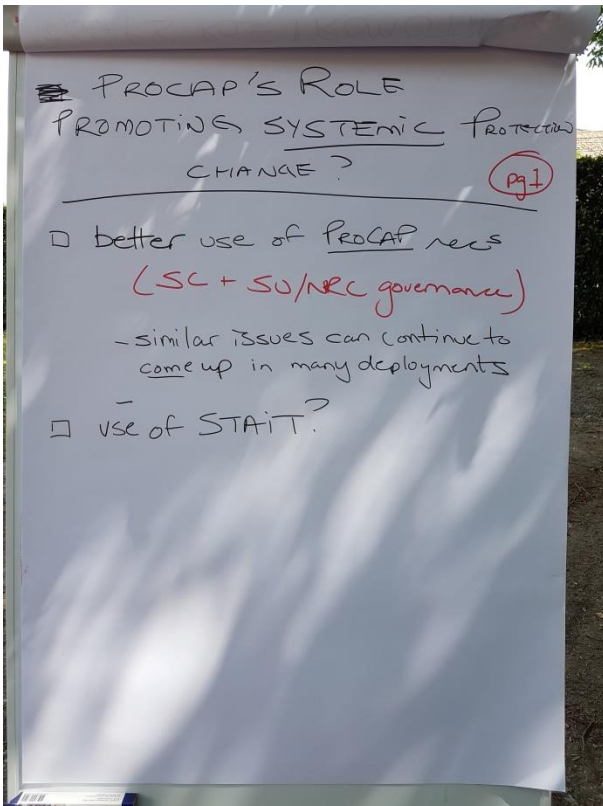 PROCAP'S ROLE
PROMOTING SYSTEMIC PROTECTION
CHANGE?
pg 1
□ better use of PROCAP recs
(SC + SU/NRC governance)
- similar issues can continue to
come up in many deployments
-
□ use of STAIT?